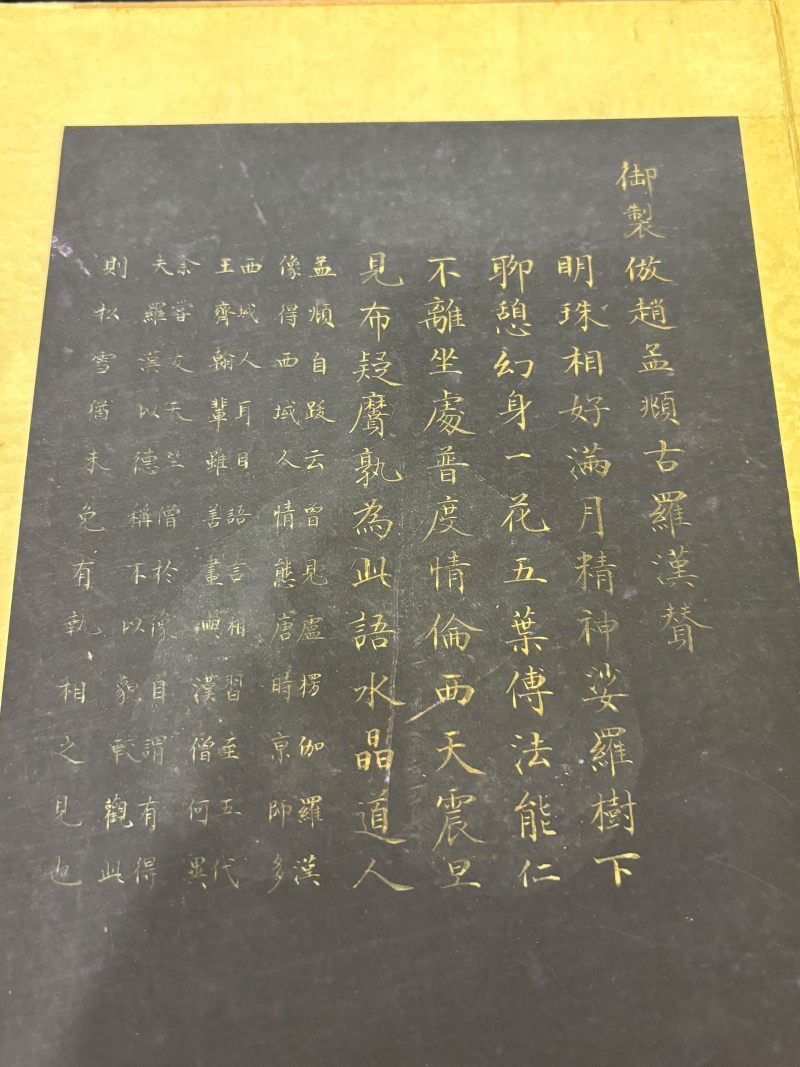 御製倣趙孟頫古羅漢贊
明珠相好滿月精神娑羅樹下
聊憩幻身一花五葉傳法能仁
不離坐處普度情倫西天震旦
見布疑贗孰為此語水晶道人
孟頫自跋云曾見盧楞伽羅漢
像得西域人情態唐時京師多
西域人耳目語言相習至五代
王齊翰輩雖善畫與漢僧何異
余嘗友天竺僧於像自謂有得
夫羅漢以德稱不以貌較觀此
則松雪猶未免有執相之見也